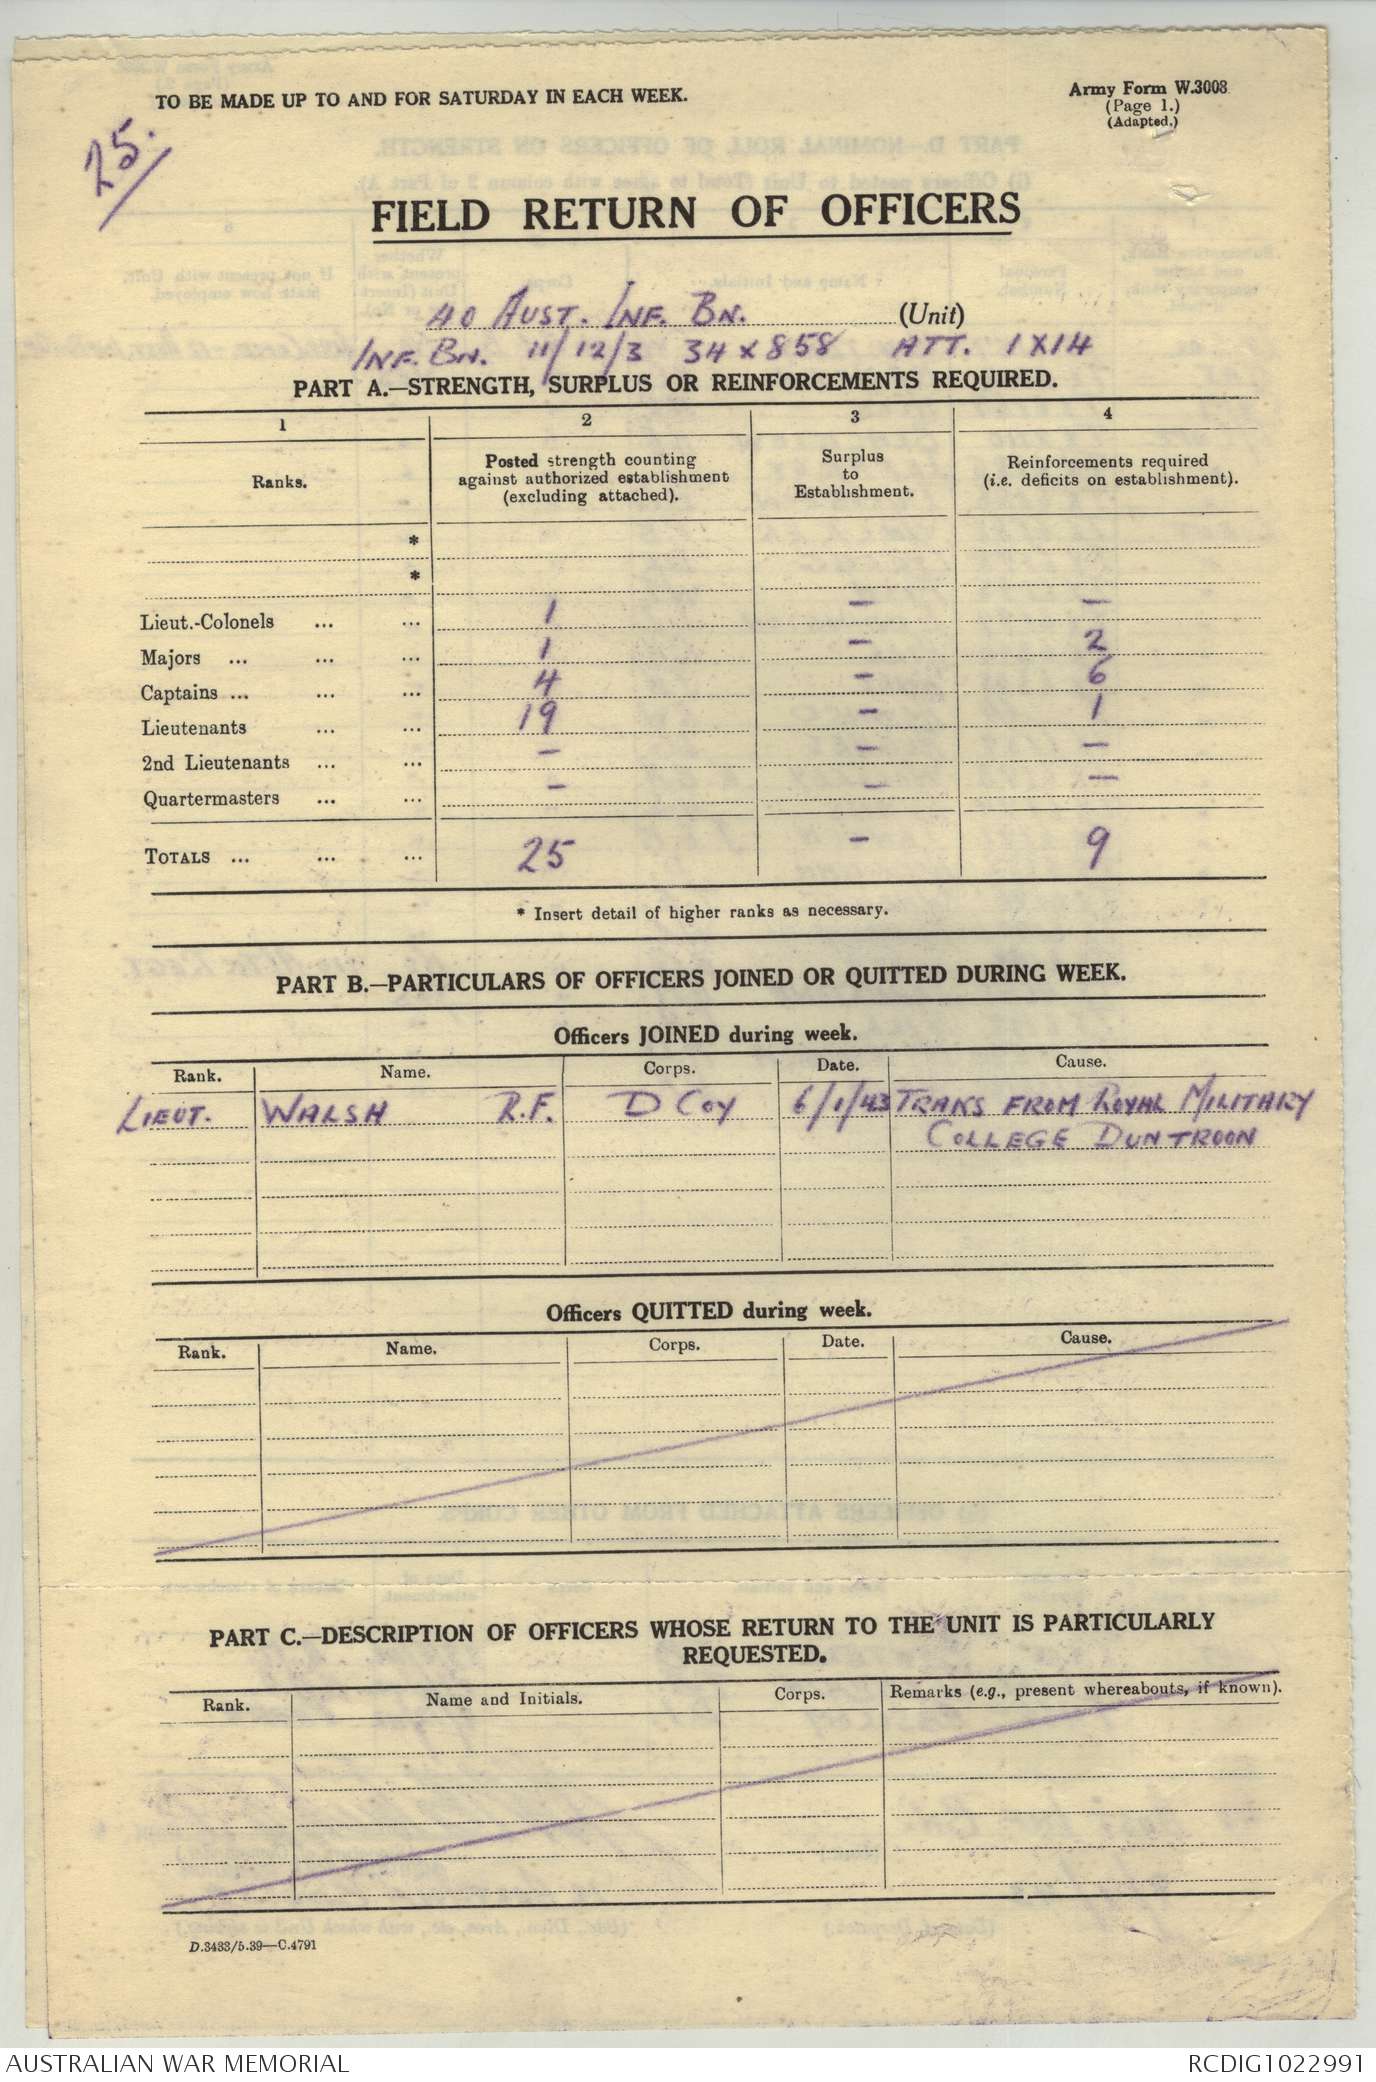 TO BE MADE UP TO AND FOR SATURDAY IN EACH WEEK.
Army Form W.3008
(Page 1.)
(Adapted.)
25.
FIELD RETURN OF OFFICERS
40 AUST. INF. BN. (Unit)
INF. BN. 11/12/3 34 x 858 ATT. 1 X 14
PART A.—STRENGTH, SURPLUS OR REINFORCEMENTS REQUIRED.
1 2 3 4
Ranks. Posted strength counting against authorized establishment (excluding attached). Surplus to Establishment. Reinforcements required (i.e. deficits on establishment).
*
*
Lieut.-Colonels ... ... 1 — —
Majors ... ... ... 1 — 2
Captains ... ... ... 4 — 6
Lieutenants ... ... 19 — 1
2nd Lieutenants ... ... — — —
Quartermasters ... ... — — —
TOTALS ... ... ... 25 — 9
* Insert detail of higher ranks as necessary.
PART B.—PARTICULARS OF OFFICERS JOINED OR QUITTED DURING WEEK.
Officers JOINED during week.
Rank. Name. Corps. Date. Cause.
LIEUT. WALSH R.F. D COY 6/1/43 TRANS FROM ROYAL MILITARY
COLLEGE DUNTROON
Officers QUITTED during week.
Rank. Name. Corps. Date. Cause.
PART C.—DESCRIPTION OF OFFICERS WHOSE RETURN TO THE UNIT IS PARTICULARLY
REQUESTED.
Rank. Name and Initials. Corps. Remarks (e.g., present whereabouts, if known).
D.3433/5.39—C.4791
AUSTRALIAN WAR MEMORIAL
RCDIG1022991